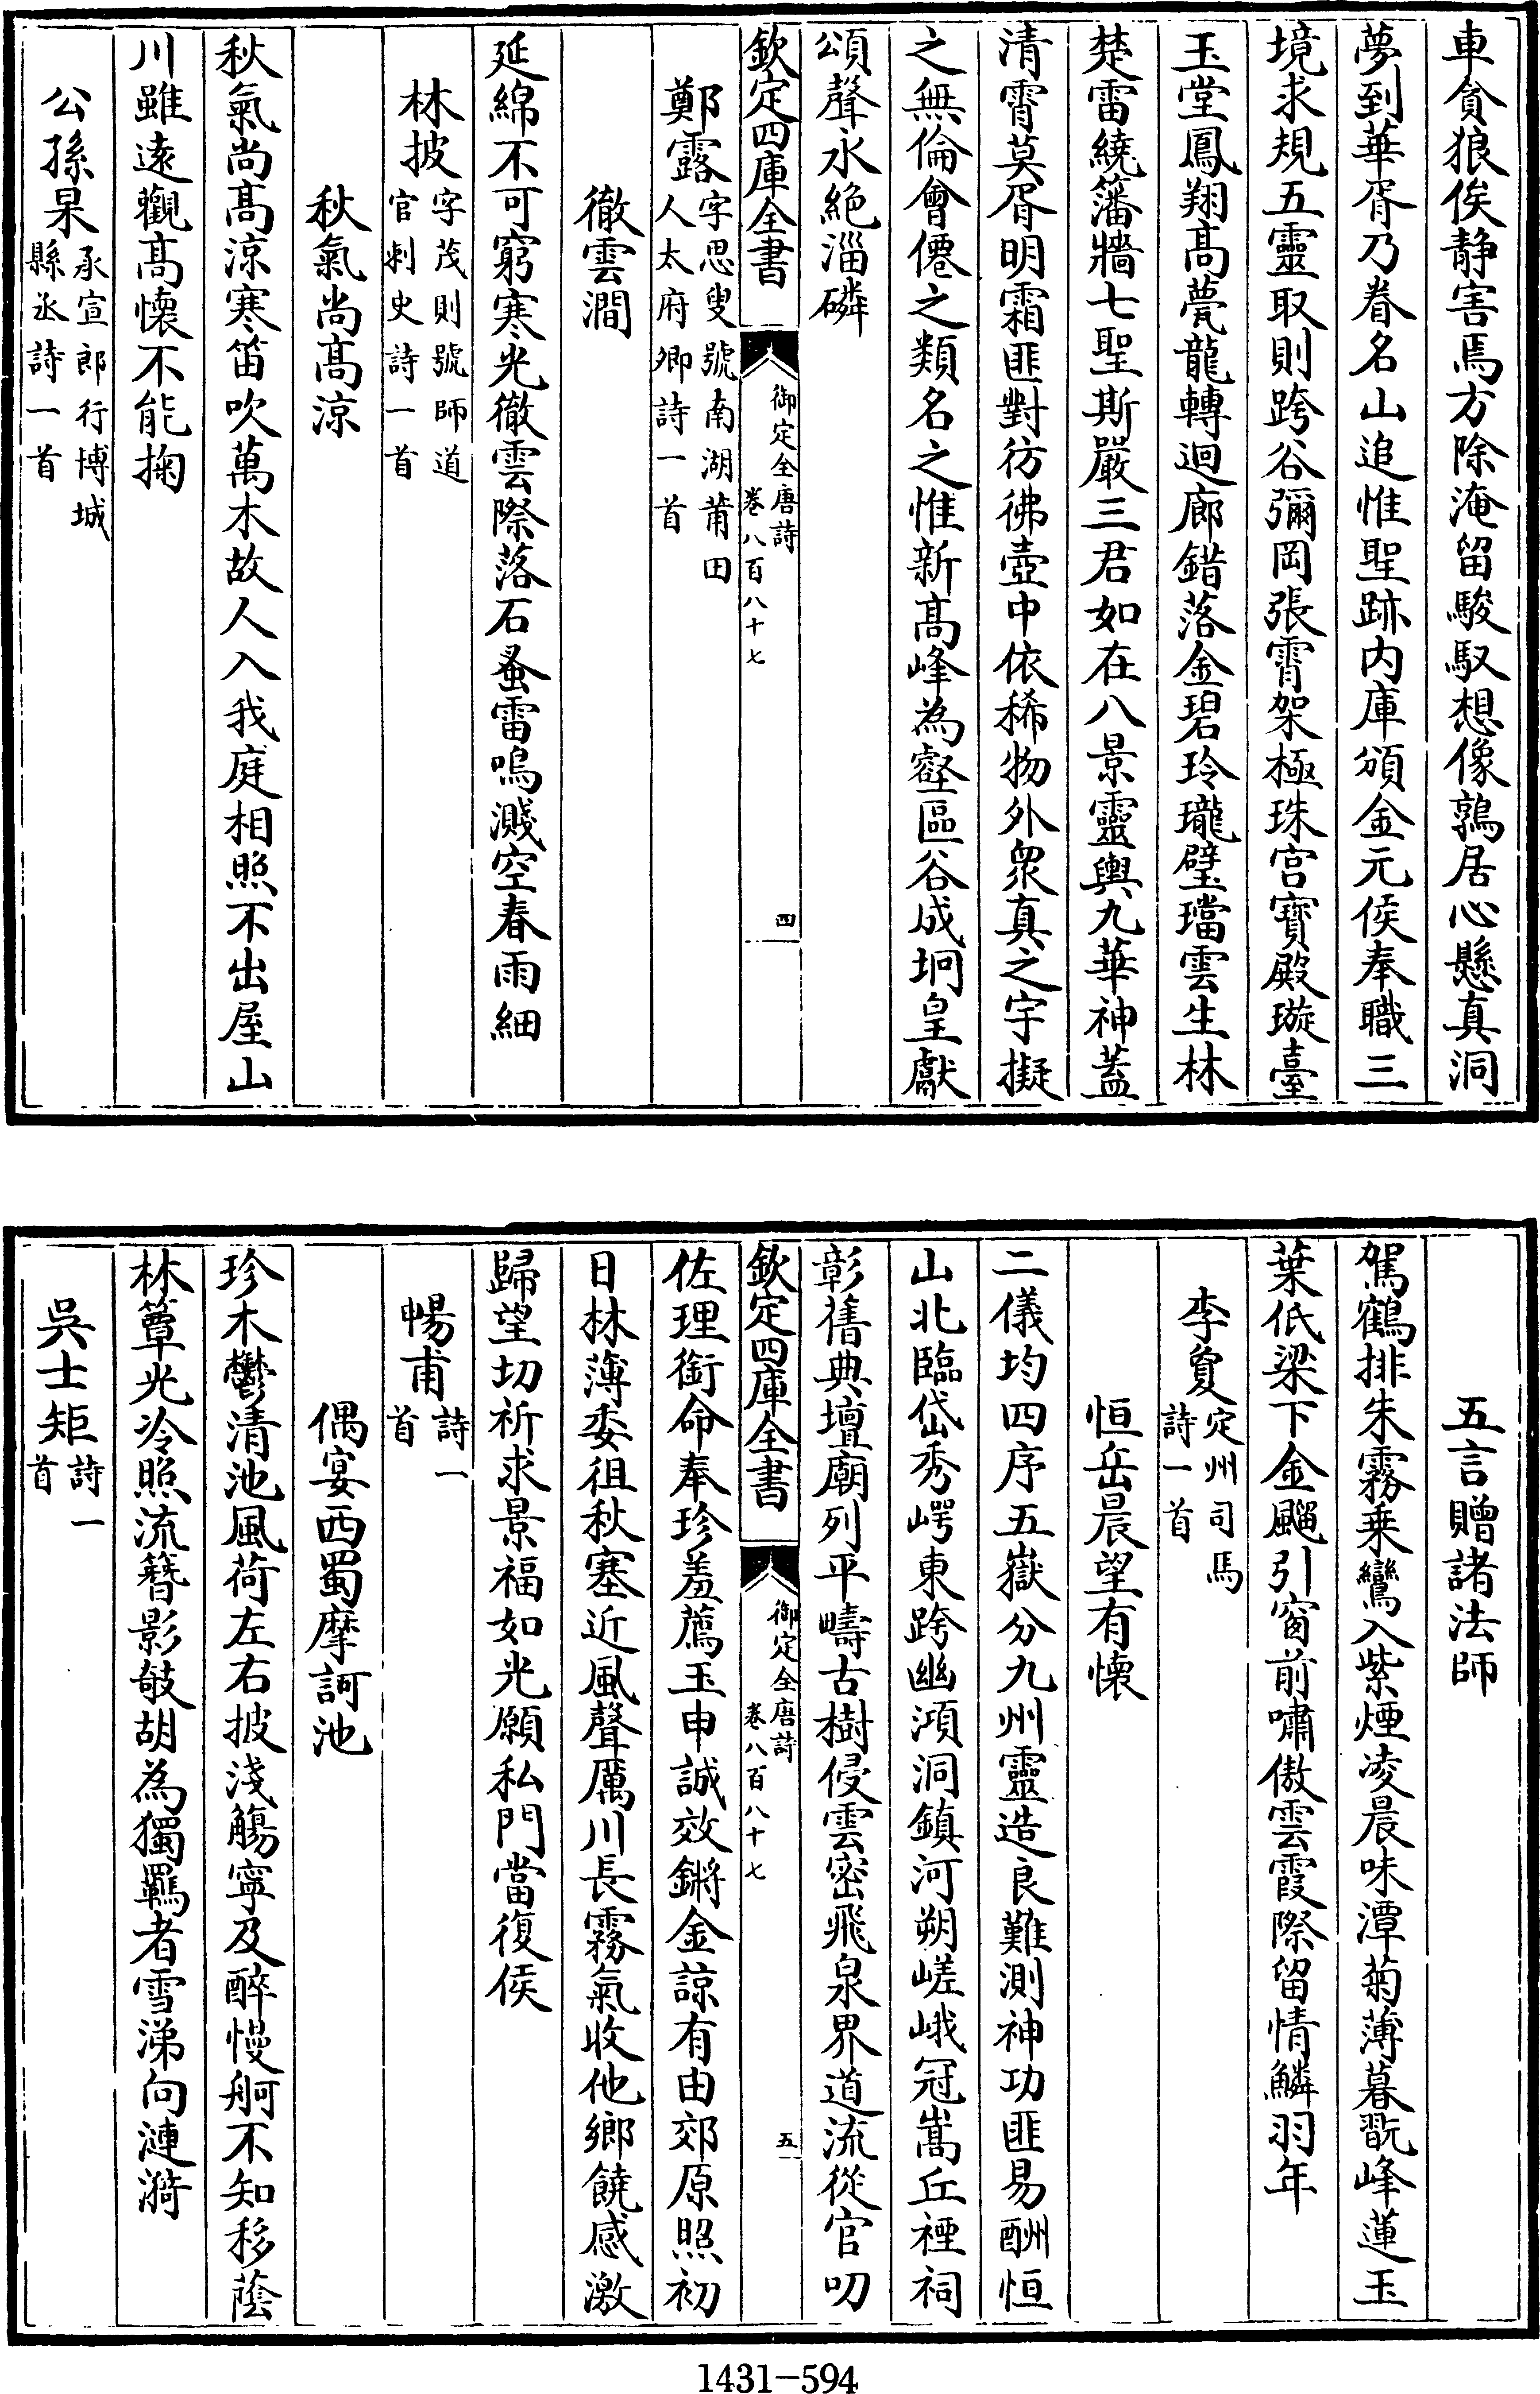 車貪狼俟静害馬方除淹留駿馭想像鶉居心懸真洞
夢到華胥乃眷名山追惟聖跡内庫頒金元侯奉職三
境求規五靈取則跨谷彌岡張霄架極珠宫寶殿璇臺
玉堂鳳翔高甍龍轉迴廊錯落金碧玲瓏璧璫雲生林
楚雷繞籓牆七聖斯嚴三君如在八景靈輿九華神蓋
清霄莫胥明霜匪對彷彿壺中依稀物外衆真之宇擬
之無倫會僊之類名之惟新高峰為壑區谷成坰皇獻
頌聲永絶淄磷
欽定四庫全書
御定全唐詩
卷八百八十七
四
鄭露字思叟號南湖莆田
人太府卿詩一首
徹雲澗
延綿不可窮寒光徹雲際落石蚤雷鳴濺空春雨細
林披字茂則號師道
官刺史詩一首
秋氣尚高涼
秋氣尚高涼寒笛吹萬木故人入我庭相照不出屋山
川雖遠觀高懷不能掬
公孫杲承宣郎行博城
縣丞詩一首
五言贈諸法師
駕鶴排朱霧乗鸞入紫煙凌晨味潭菊薄暮翫峰蓮玉
葉低梁下金飈引窗前嘯傲雲霞際留情鱗羽年
李夐定州司馬
詩一首
恒岳晨望有懷
二儀均四序五嶽分九州靈造良難測神功匪易酬恒
山北臨岱秀崿東跨幽澒洞鎮河朔嵯峨冠嵩丘禋祠
彰舊典壇廟列平疇古樹侵雲密飛泉界道流從官叨
欽定四庫全書
御定全唐詩
卷八百八十七
五
佐理銜命奉珍羞薦玉申誠效鏘金諒有由郊原照初
日林薄委徂秋塞近風聲厲川長霧氣收他鄉饒感激
歸望切祈求景福如光願私門當復侯
暢甫詩一
首
偶宴西蜀摩訶池
珍木鬱清池風荷左右披淺觴寧及醉慢舸不知移蔭
林簟光冷照流簪影攲胡為獨羈者雪涕向漣漪
吳士矩詩一
首
1431-594